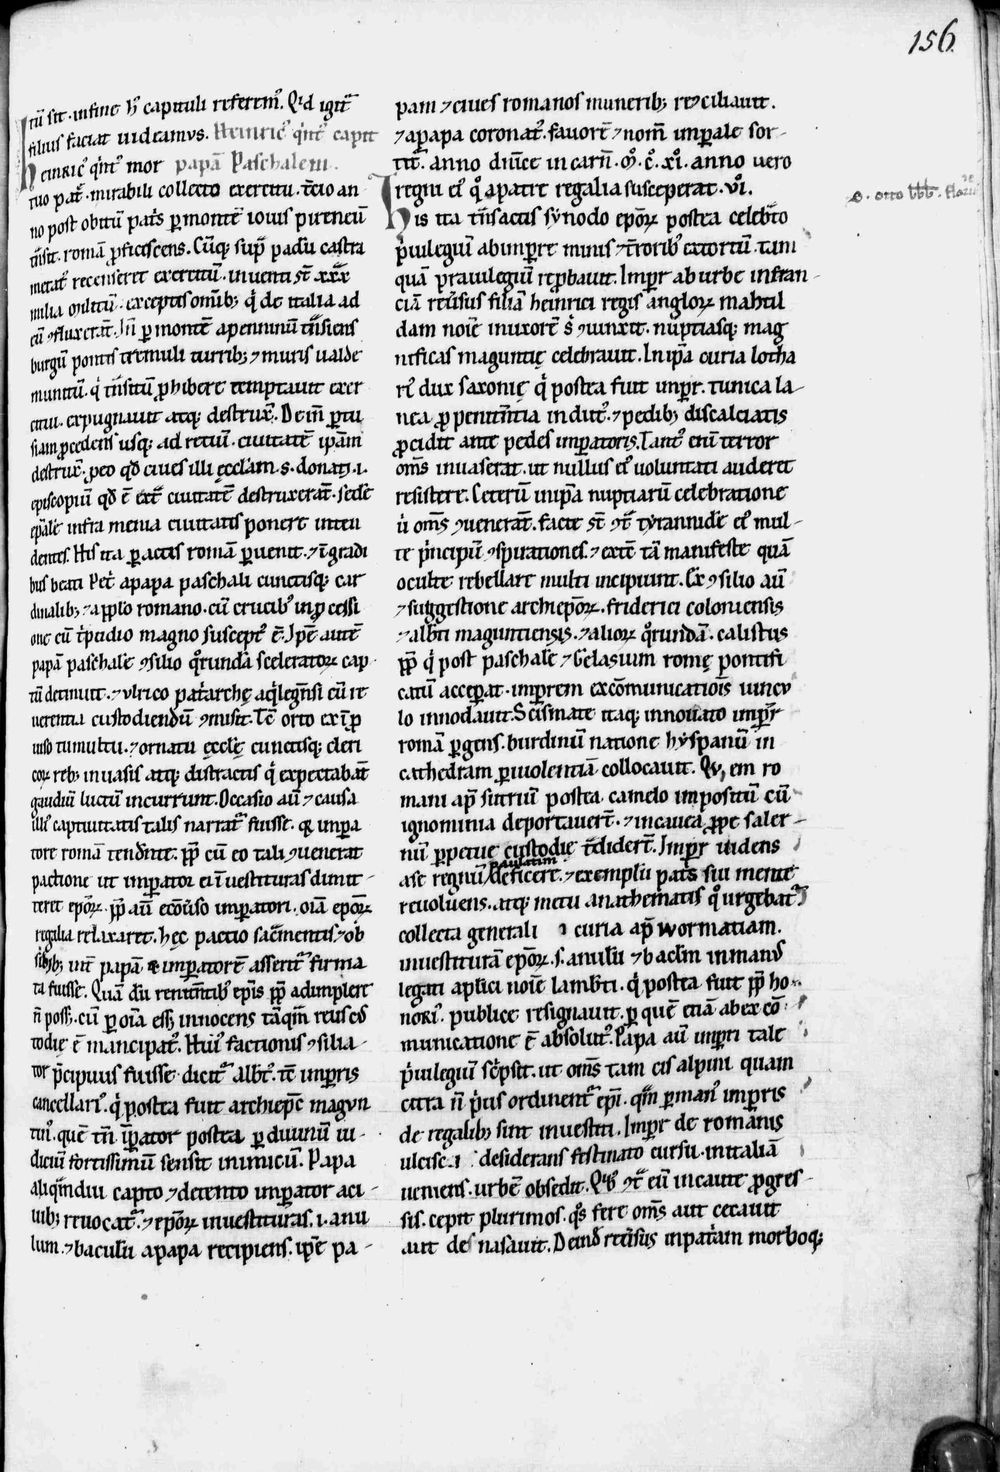 156.
tū sit. in fine hꝰ capituli referemꝰ. Qͥd igitᷓ
filius faciat videamus. Heinricꝰ qͥntꝰ capit
heinricꝰ qͥntꝰ mor papā Paschalem.
tuo patͤ. mirabili collecto exercitu. tcio an-
no post obitū patͥs ꝑ montē iouis pireneū
tͣnsit. romā ꝓficiscens. Cūq; supͣ padū castra
metatꝰ recenseret exercitū. inventi sͭ xxx
milia militū. exceptis omībꝫ qͥ de italia ad
eū ꝯfluxerāt. In ꝑ montē apenninū tͣnsiens
burgū pontis tremuli turribꝫ ⁊ muris ualde
munitū. qͥ tͣnsitū ꝓhibere temptauit exer
citui. expugnauit atq; destruxͭ. Dein ꝑ tu
siam ꝓcedens usq; ad retiū. ciuitatē ipām
destruxͭ. ꝓ eo qđ ciues illi ęccłam. s. donati. i.
episcopiū qđ ē extͣ ciuitatē destruxerāt. sedē
epāłē infra menia ciuitatis ponere inten
dentes. His ita ꝑactis romā ꝑuenit. ⁊ ī gradi
bus beati Petͥ a papa paschali cunctisq; car
dinalibꝫ ⁊ a ppło romano. cū crucibꝰ in ꝓcessi
one cū tͥpudio magno susceptꝰ ē. Ipē autē
papā paschalē ꝯsilio qͦrundā sceleratoꝝ cap
tū detinuit. ⁊ vlrico patͥarchę aqͥlegn̄si cū re
uerentia custodiendū ꝯmisit. Tē orto ex īꝓ
uiso tumultu. ⁊ ornatu ęcclę cunctisq; cleri
coꝝ rebꝫ inuasis atq; distractis qͥ expectabāt
gaudiū luctū incurrunt. Occasio aū ⁊ causa
illiꝰ captiuitatis talis narratᷓ fuisse. qͣ impa
tore romā tendente. pp̄ cū eo tali ꝯuenerat
pactione ut imperator ei īuestituras dimit-
teret epōꝝ. pp̄ aū ecōuͥso imperatori. oīa epōꝝ
regalia relaxaret. hęc pactio sacͣmentis ⁊ ob
sidibꝫ int̄ papā ⁊ imperatorē asseritᷓ firma
ta fuisse. Quā dū renitentibꝰ epīs pp̄ adimplere
n̄ poss̄. cū ꝑ oīa ess̄ innocens tāqͣm reus cꝰ
todię ē mancipatꝰ. Huiꝰ factionis ꝯsilia-
tor pͥcipuus fuisse dicitᷓ albtꝰ. tē impris
cancellariꝰ. qͥ postea fuit archiepc magun
tinꝰ. quē tn̄ impator postea ꝑ diuinū iu-
diciū fortissimū sensit inimicū. Papa
aliqͣndiu capto ⁊ detento imperator a ci-
uibꝫ reuocatᷓ. ⁊ epōꝝ inuestituras. i. anu
lum. ⁊ baculū a papa recipiens. ipē pa-
pam ⁊ ciues romanos muneribꝫ reꝯciliauit.
⁊ a papa coronatꝰ. fauorē ⁊ nom̄ imperiale sor-
titᷓ. anno dn̄ice incarn̄. M̊. C̊. xi̊. anno uero
regni eiꝰ qͦ a patre regalia susceperat. vi̊.
o. otto. florie
His ita tͣnsactis synodo epōꝝ postea celebͣto
pͥuilegiū ab imp̄re minis ⁊ tͤroribꝰ extortū. tam
quā prauilegiū rep̱bauit. Imp̄r ab urbe in fran-
ciā reuͥsus filiā heinrici regis angloꝝ mahtil
dam noīe in uxorē sͥ ꝯiunxit. nuptiasq; mag
nificas maguntię celebrauit. In ipā curia lotha
riꝰ dux saxonię qͥ postea fuit imp̄r. tunica la-
nea ꝓ penitn̄tia indutꝰ. ⁊ pedibꝫ discalciatis
ꝓcidit ante pedes imperatoris. Tantꝰ enī terror
oms inuaserat. ut nullus eiꝰ uoluntati auderet
resistere. Ceterū in ipā nuptiarū celebratione
ū oms ꝯuenerāt. facte sͭ ꝯtͣ tyrannidē eiꝰ mul-
te pͥncipiū ꝯspirationes. ⁊ extē tā manifeste quā
oculte rebellare multi incipiunt. Ex ꝯsilio aū
⁊ suggestione archiepōꝝ. friderici coloniensis
⁊ albti maguntiensis. ⁊ alioꝝ qͦrundā. calistus
pp̄ qͥ post paschalē ⁊ gelasium romę pontifi
catū acceperat. imp̄rem excōmunicatiōis vincu
lo innodauit. Scismate itaq; innouato imp̄r
romā ꝑgens. burdinū natione hyspanū in
cathedram ꝑ uiolentiā collocauit. Quem ro
mani ap̄ sutriū postea camelo impositū cū
ignominia deportauerͭ. ⁊ in cauea ꝓpe saler-
nū ꝑpetue custodię tͣdiderͭ. Imp̄r uidens
a se regnū paulatim deficere. ⁊ exemplū patͥs sui mente
reuoluens. atq; metu anathematis qͦ urgebatᷓ
collecta generali curia ap̄ wormatiam.
inuestiturā epōꝝ. s. anulū ⁊ baclm in manꝰ
legati aplici noīe lambti. qͥ postea fuit pp̄ ho-
noriꝰ. publice resignauit. ꝑ quē etiā ab excō-
municatione ē absolutꝰ. Papa aū imp̄ri tale
pͥuilegiū scͥpsit. ut oms tam cis alpini quam
citra n̄ pͥus ordinentᷓ epī. qͣm ꝑ manꝰ imp̄ris
de regalibꝫ sint inuestiti. Imp̄r de romanis
ulcisci desiderans festinato cursu. in italiā
ueniens. urbē obsedit. Qͥbꝰ ꝯtͣ eū incaute ꝓgres-
sis. cepit plurimos. qͦs fere oms aut cecauit
aut denasauit. Deind reuͥsus in patͥam morboq;